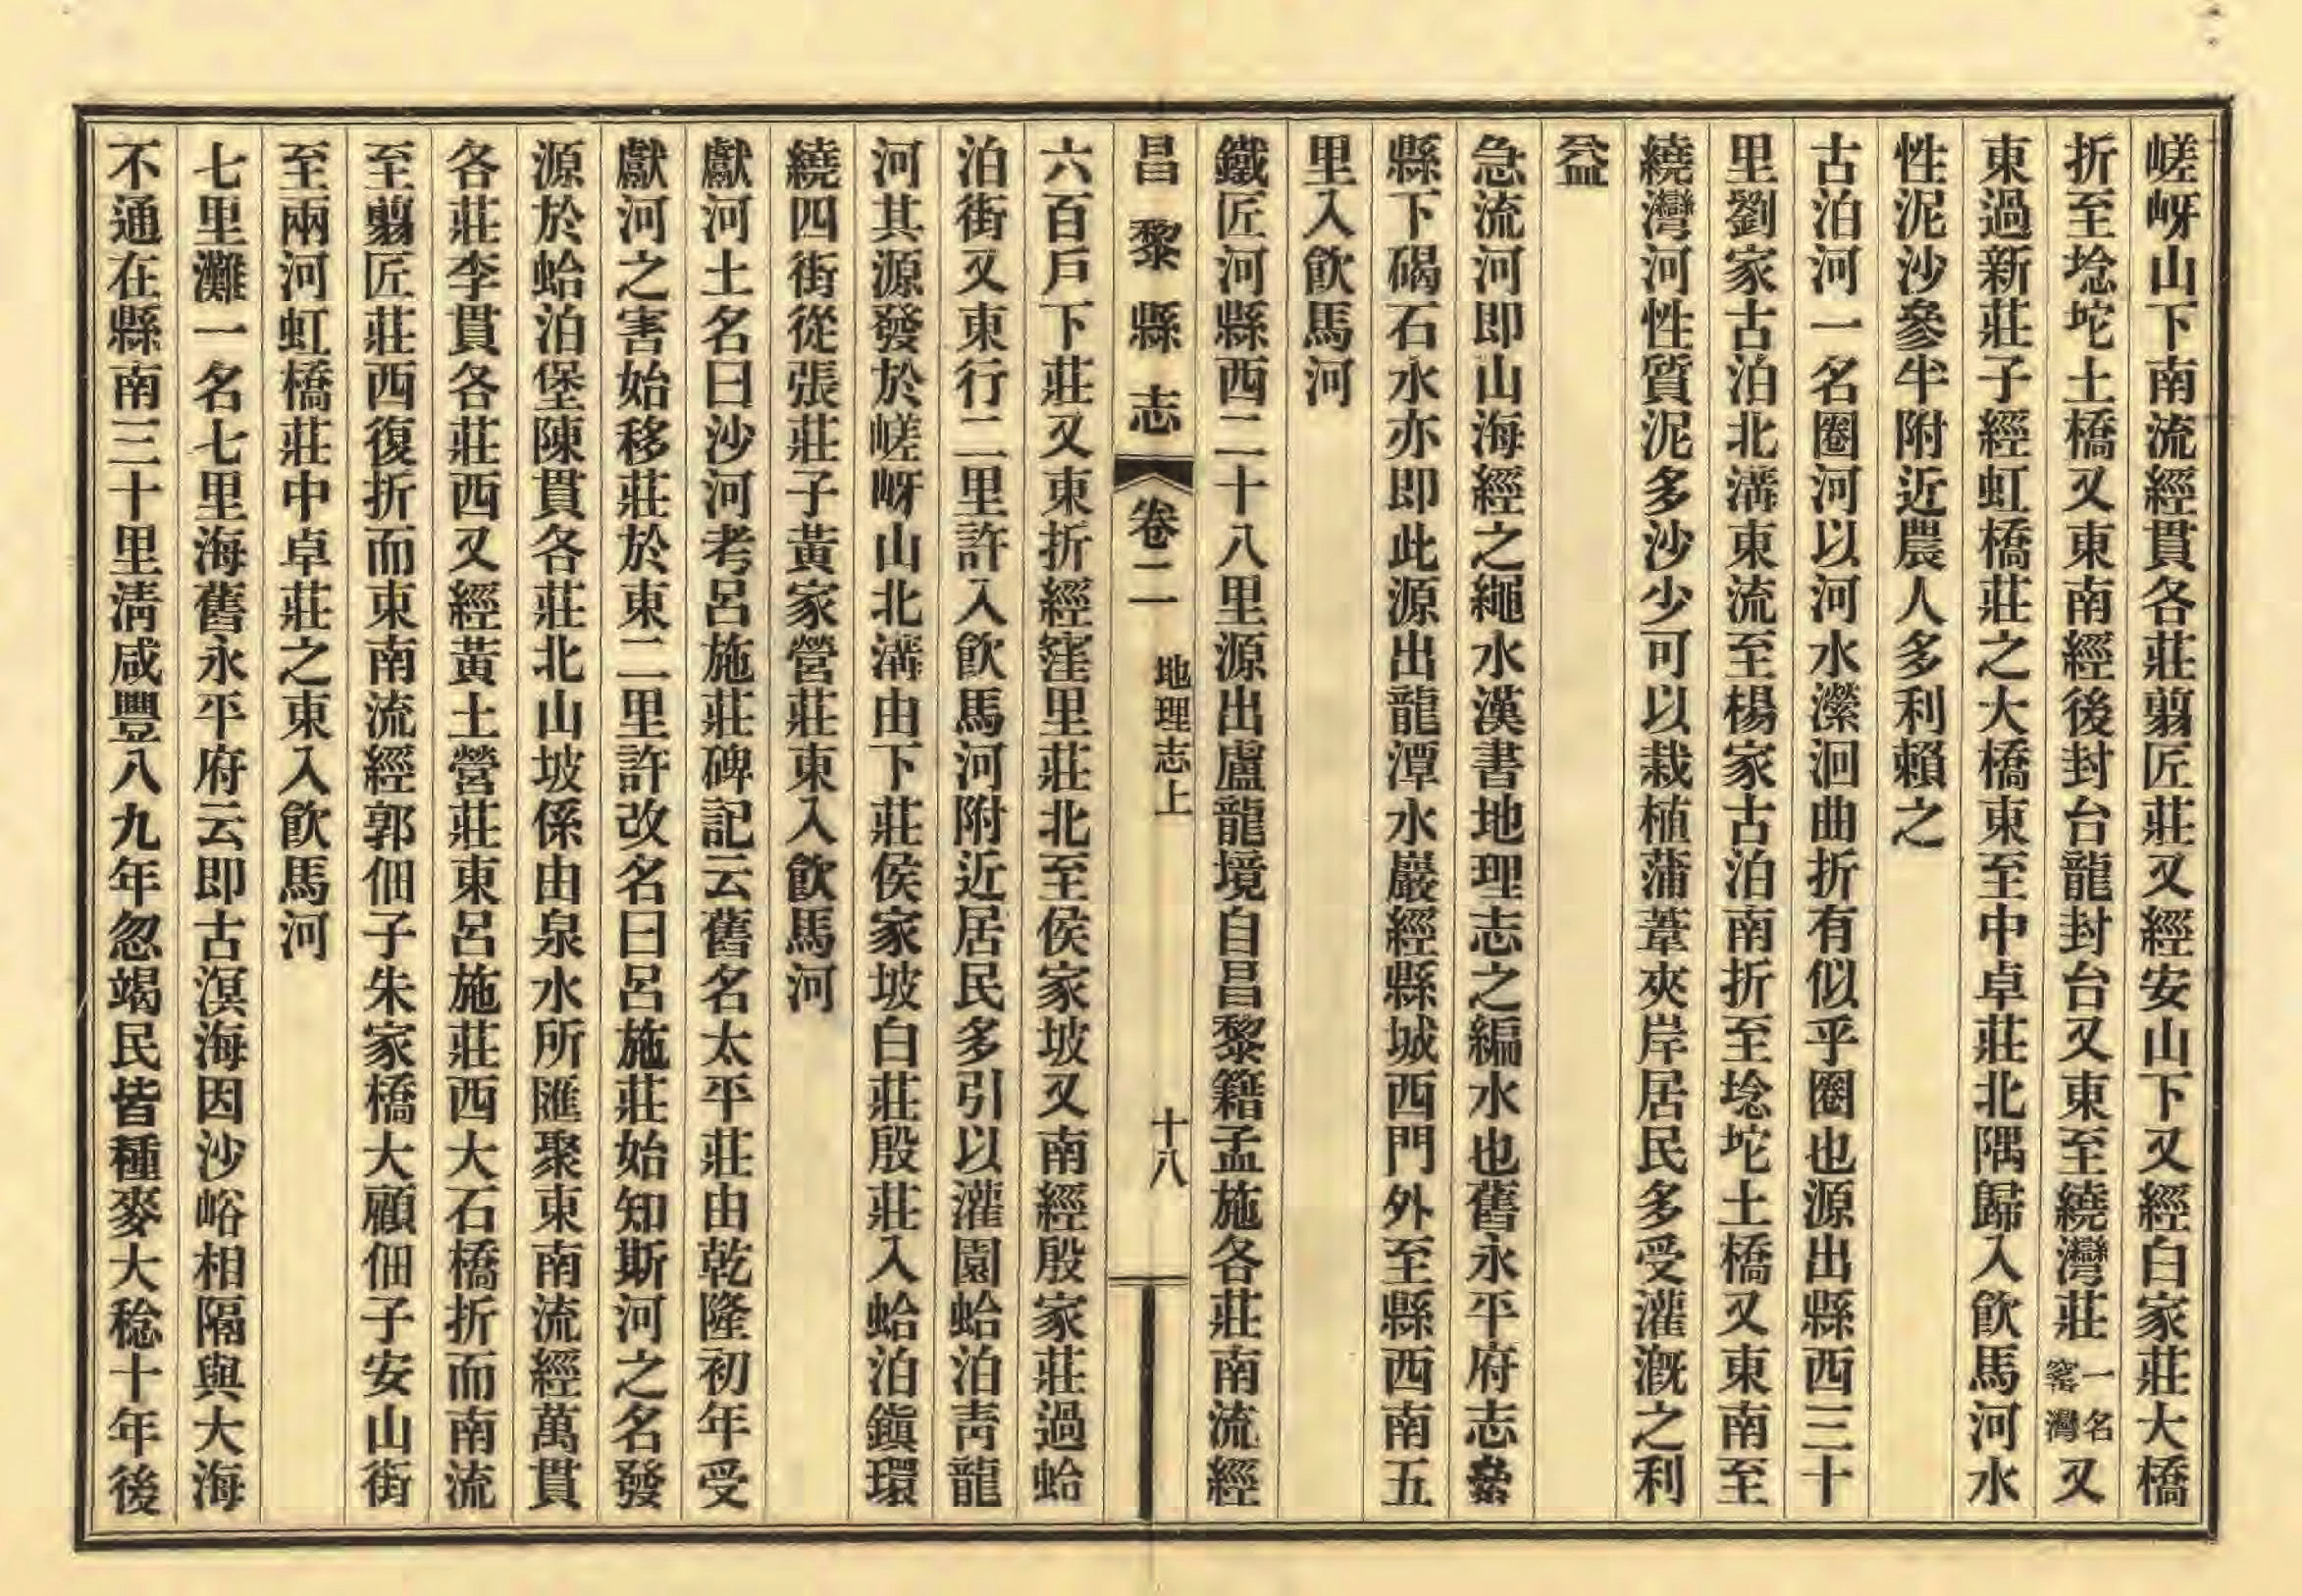 嵯岈山下南流經貫各莊翦匠莊又經安山下又經白家莊大橋
折至埝坨土橋又東南經後封台龍封台又東至繞灣莊一名窰灣又
東過新莊子經虹橋莊之大橋東至中卓莊北隅歸入飮馬河水
性泥沙參半附近農人多利賴之
古泊河一名圈河以河水瀠洄曲折有似乎圈也源出縣西三十
里劉家古泊北溝東流至楊家古泊南折至埝坨土橋又東南至
繞灣河性質泥多沙少可以栽植蒲葦夾岸居民多受灌溉之利
益
急流河即山海經之繩水漢書地理志之編水也舊永平府志縏
縣下碣石水亦即此源出龍潭水巖經縣城西門外至縣西南五
里入飮馬河
鐵匠河縣西二十八里源出盧龍境自昌黎籍孟施各莊南流經
昌黎縣志 卷二 地理志上 十八
六百戶下莊又東折經窪里莊北至侯家坡又南經殷家莊過蛤
泊街又東行二里許入飮馬河附近居民多引以灌園蛤泊靑龍
河其源發於嵯岈山北溝由下莊侯家坡白莊殷莊入蛤泊鎭環
繞四街從張莊子黃家營莊東入飮馬河
獻河土名曰沙河考呂施莊碑記云舊名太平莊由乾隆初年受
獻河之害始移莊於東二里許改名曰呂施莊始知斯河之名發
源於蛤泊堡陳貫各莊北山坡係由泉水所匯聚東南流經萬貫
各莊李貫各莊西又經黃土營莊東呂施莊西大石橋折而南流
至翦匠莊西復折而東南流經郭佃子朱家橋大顧佃子安山街
至兩河虹橋莊中卓莊之東入飮馬河
七里灘一名七里海舊永平府云即古溟海因沙峪相隔與大海
不通在縣南三十里淸咸豐八九年忽竭民皆種麥大稔十年後